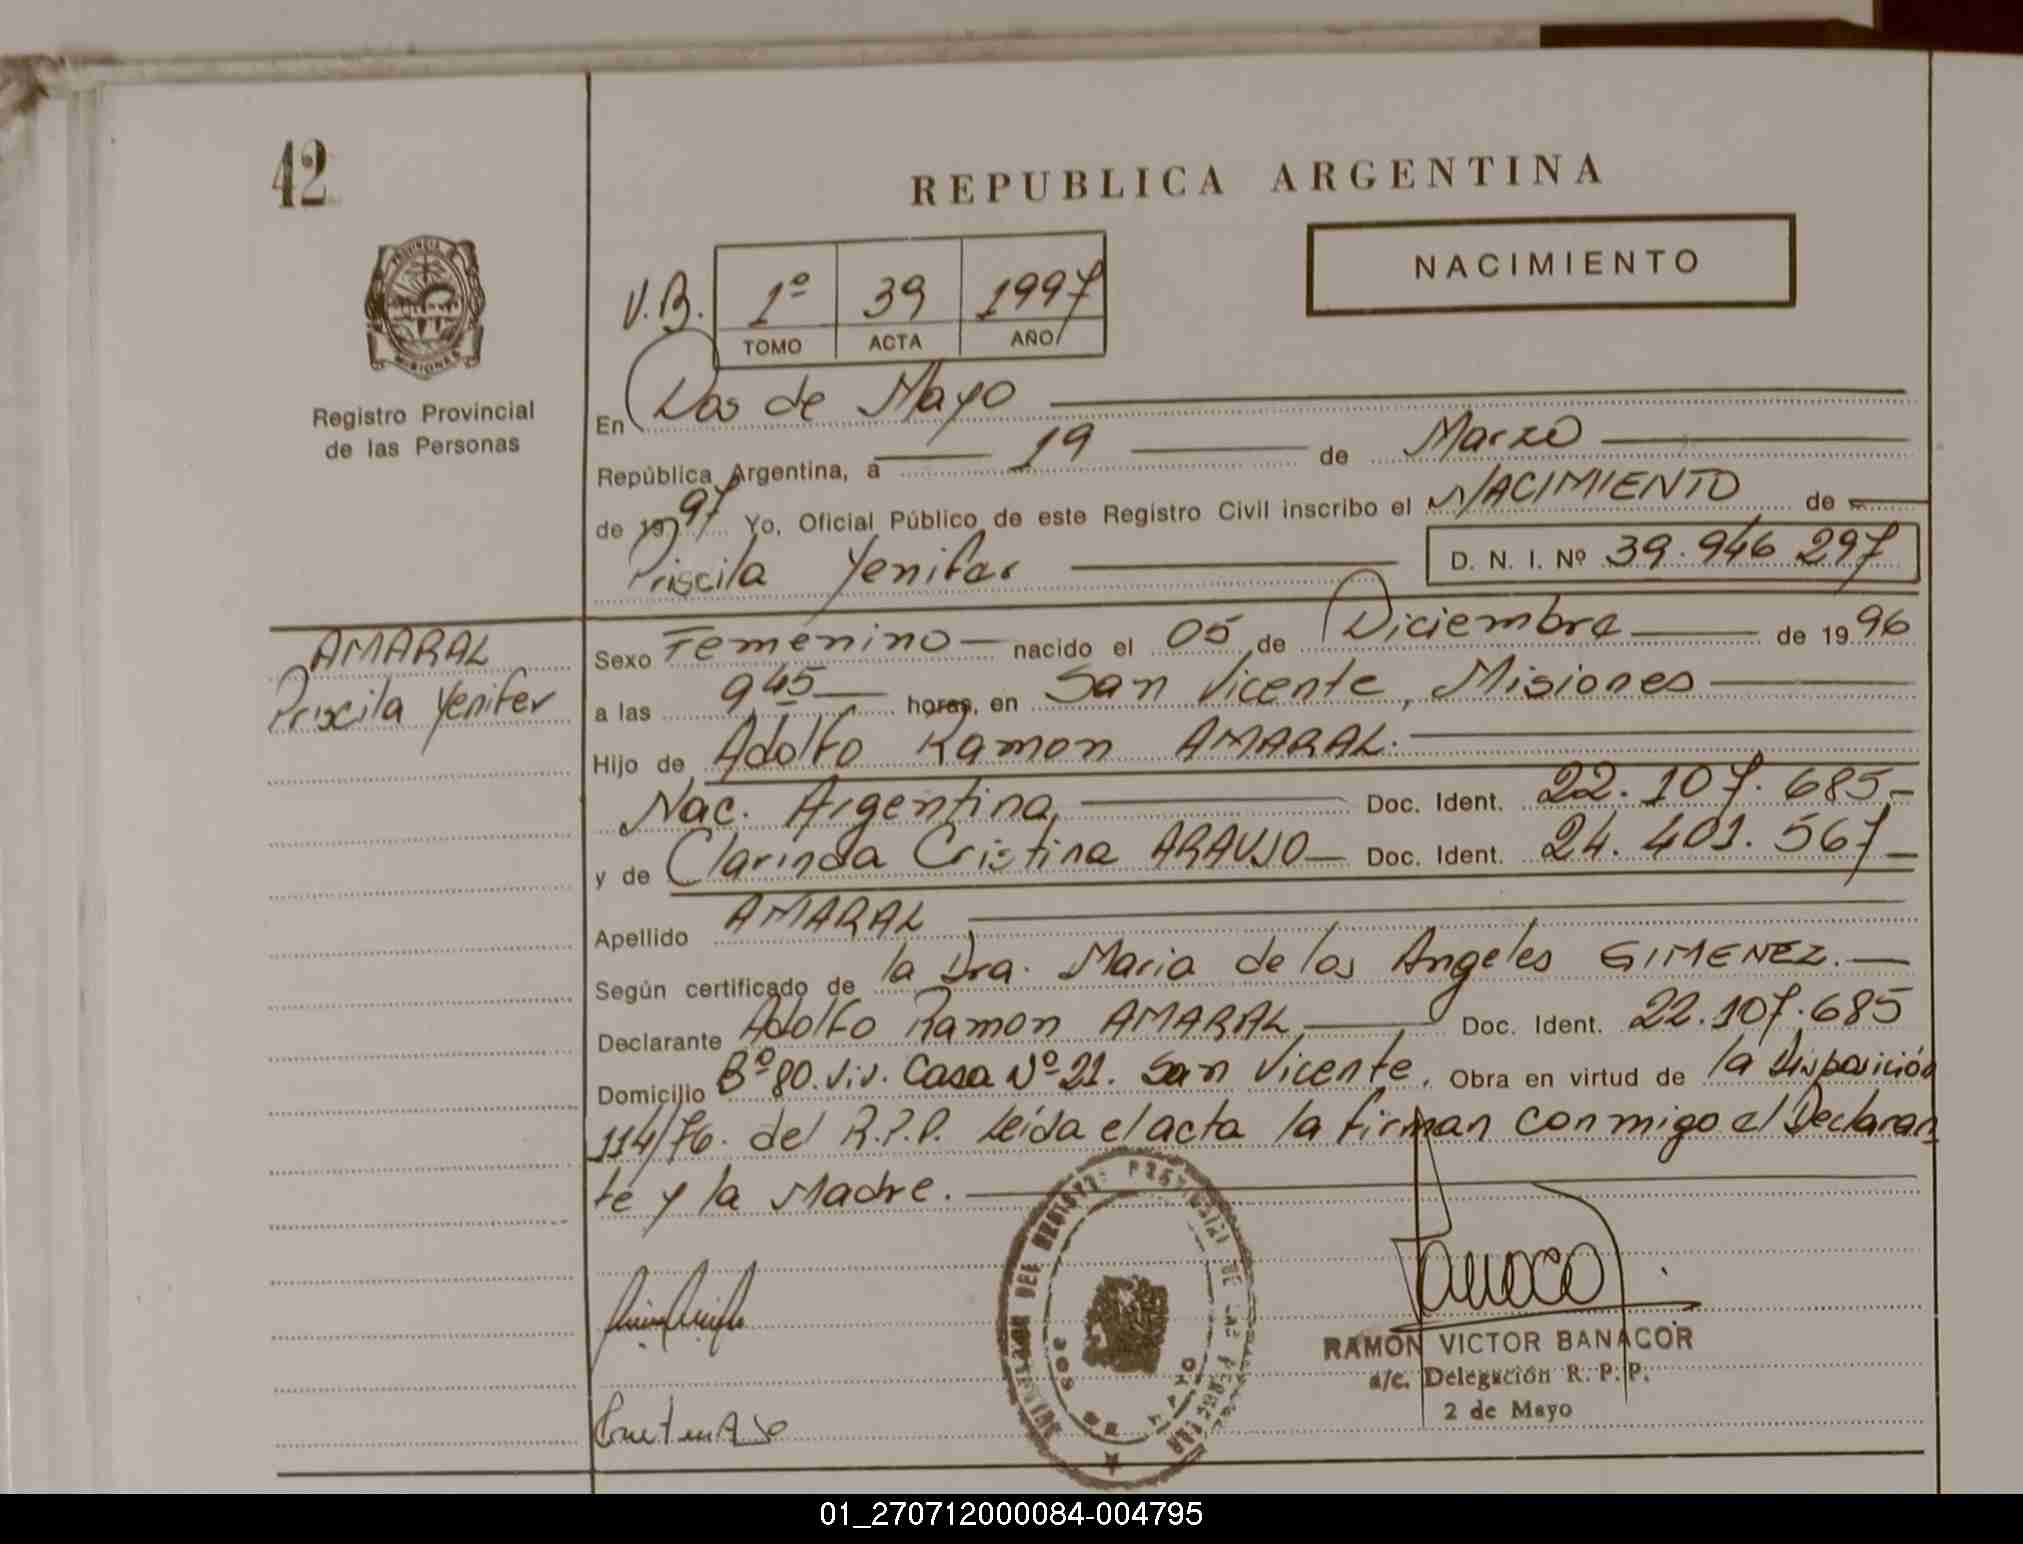 42
REPUBLICA ARGENTINA
NACIMIENTO
V.B. 1º 39 1997
TOMO ACTA AÑO
Registro Provincial
de las Personas
En Dos de Mayo
República Argentina, a 19 de Marzo
de 1997 Yo, Oficial Público de este Registro Civil inscribo el NACIMIENTO de
Priscila Yenifer
D. N. I. Nº 39.946 297
AMARAL
Priscila Yenifer
Sexo Femenino nacido el 05 de Diciembre de 1996
a las 945 horas, en San Vicente, Misiones
Hijo de Adolfo Ramon AMARAL.
Nac. Argentina, Doc. Ident. 22.107.685
y de Clarinda Cristina ARAUJO Doc. Ident. 24.401.567
Apellido AMARAL
Según certificado de la Dra. Maria de los Angeles GIMENEZ.
Declarante Adolfo Ramon AMARAL Doc. Ident. 22.107.685
Domicilio Bº 80. viv. Casa Nº 21. San Vicente. Obra en virtud de la Disposición
114/76. del R.P.P. Leída el acta la firman conmigo el Declaran
te y la Madre.
RAMON VICTOR BANACOR
a/c. Delegación R. P. P.
2 de Mayo
01_270712000084-004795